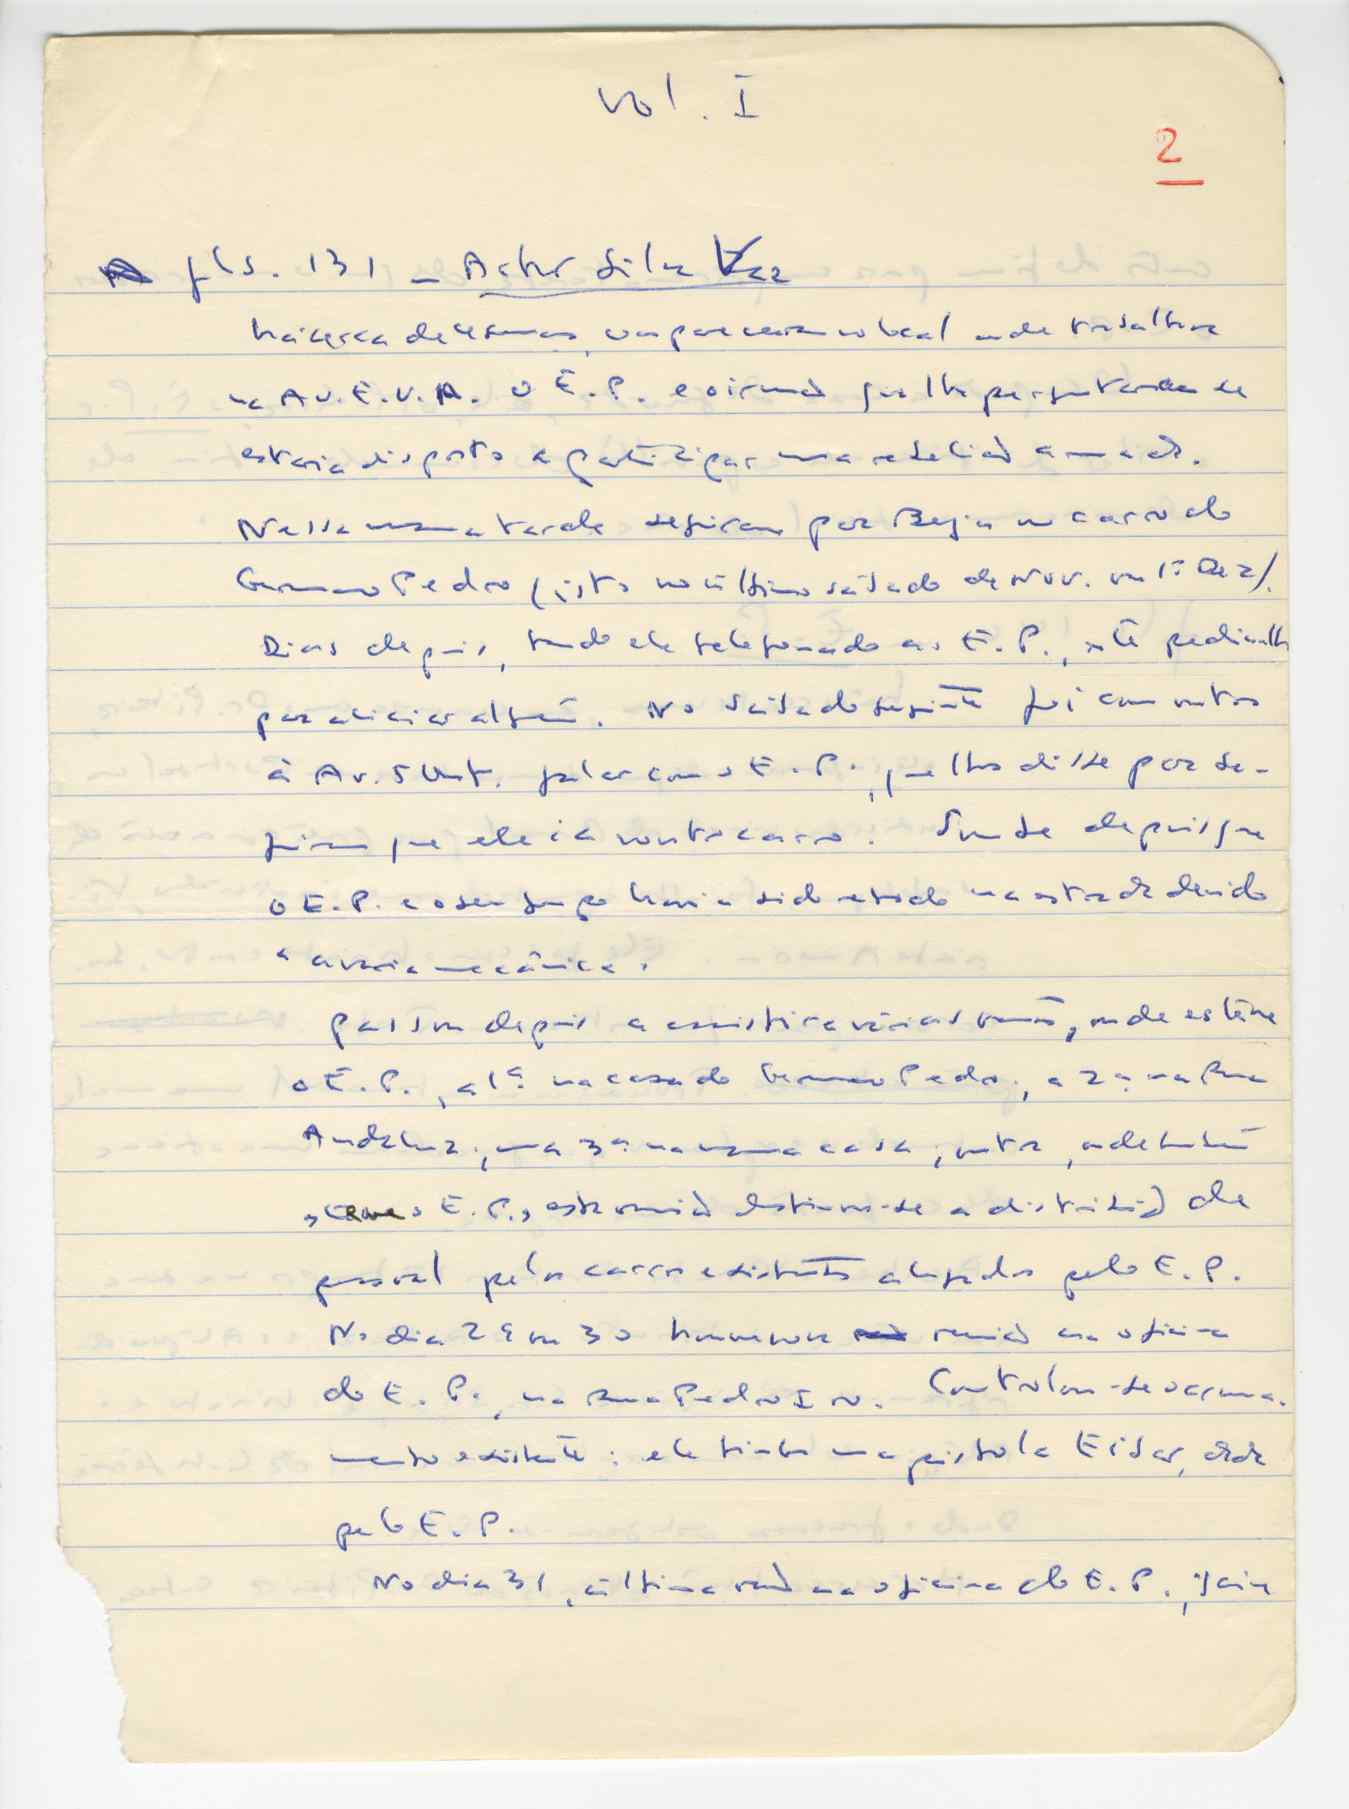 Vol. I
2
fls. 131 - Artur Silva Vaz
há cerca de semanas, compareceram no local onde trabalhava
na Av. E.U.A. o E.P. e o irmão que lhe perguntaram se
estaria disposto a participar numa rebelião armada.
Nessa mesma tarde seguiram para Beja no carro do
Germano Pedro (isto no último sábado de Nov. ou 1º Dez).
Dias depois, tendo ele telefonado ao E.P., este pediu-lhe
para aliciar alguém. No sábado seguinte foi com outros
à Av. 5 Out. falar com o E.P., que lhes disse para se-
guirem que ele ia noutro carro. Soube depois que
o E.P. e o seu grupo havia sido retido na estrada devido
a avaria mecânica.
Passou depois a assistir a várias reuniões, onde esteve
o E.P., a 1ª na casa do Germano Pedro; a 2ª na Rua
Andaluz; uma 3ª na mesma casa; outra, onde também
esteve o E.P., esta reunião destinou-se a distribuição de
pessoal pelos carros existentes alugados pelo E.P.
No dia 29 ou 30 houve nova reunião na oficina
do E.P., na Rua Pedro IV. Controlou-se o arma-
mento existente: ele tinha uma pistola, dada
pelo E.P.
No dia 31, última reunião na oficina do E.P.,